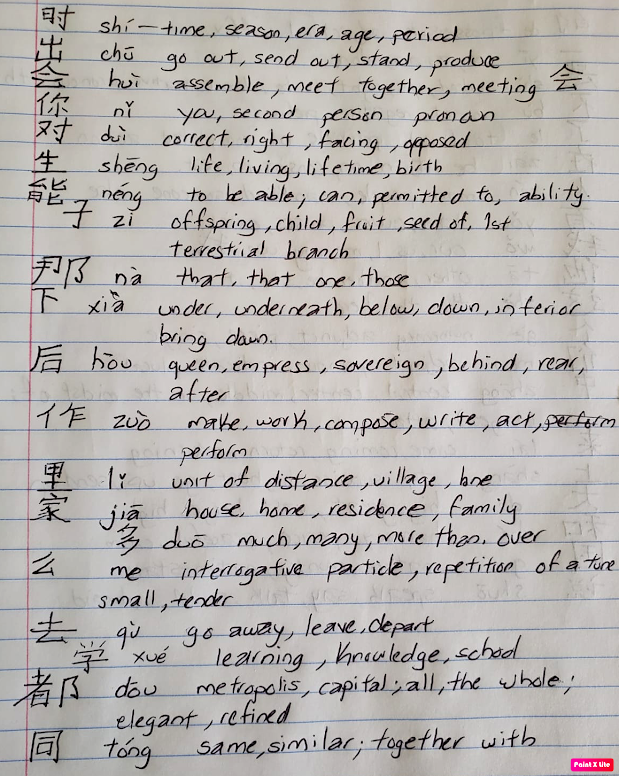 时 shí — time, season, era, age, period
出 chū go out, send out, stand, produce
会 huì assemble, meet together, meeting 会
你 nǐ you, second person pronoun
对 duì correct, right, facing, opposed
生 shēng life, living, lifetime, birth
能 néng to be able; can, permitted to, ability.
子 zi offspring, child, fruit, seed of, 1st
terrestrial branch
那 nà that, that one, those
下 xià under, underneath, below, down, inferior
bring down.
后 hòu queen, empress, sovereign, behind, rear,
after
作 zuò make, work, compose, write, act, perform
perform
里 lǐ unit of distance, village, lane
家 jiā house, home, residence, family
多 duō much, many, more than, over
么 me interrogative particle, repetition of a tune
small, tender
去 qù go away, leave, depart
学 xué learning, knowledge, school
都 dōu metropolis, capital; all, the whole;
elegant, refined
同 tóng same, similar; together with
Paint X Lite